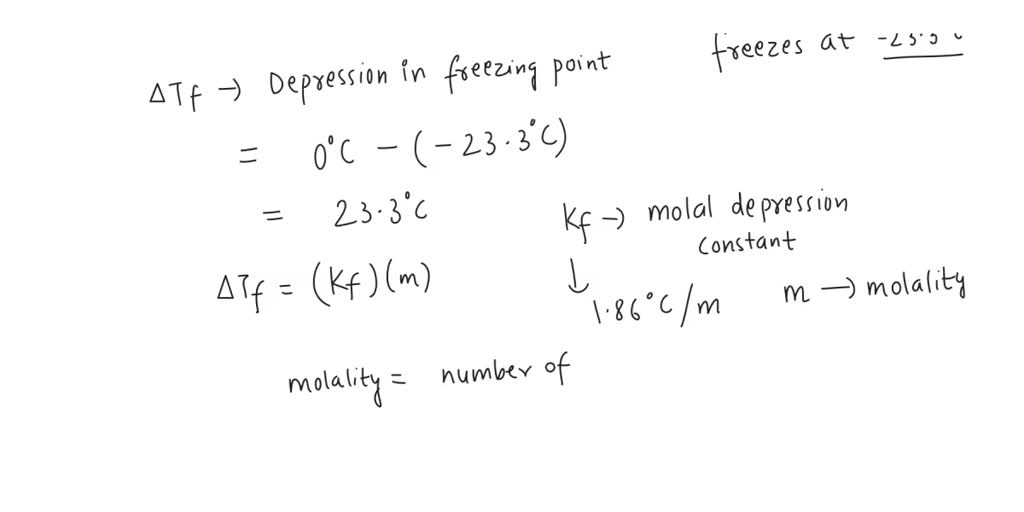 freezes at -23.3
ΔTf → Depression in freezing point
= 0°C - (-23.3°C)
= 23.3°C
Kf → molal depression
constant
ΔTf = (Kf)(m)
↓
1.86°C/m
m → molality
molality = number of